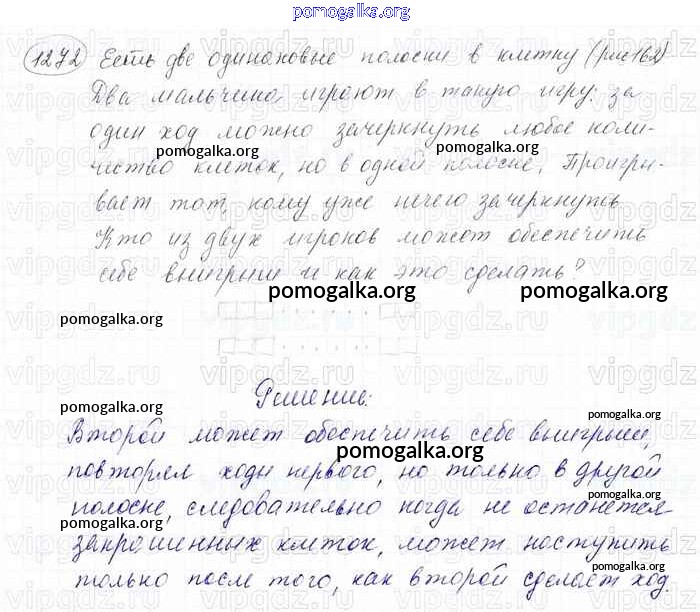 pomogalka.org
1272 Есть две одинаковые полоски в клетку (рис 162)
Два мальчика играют в такую игру: за
один ход можно зачеркнуть любое коли-
чество клеток, но в одной полоске. Проигры-
вает тот, кому уже нечего зачеркнуть
Кто из двух игроков может обеспечить
себе выигрыш и как это сделать?
pomogalka.org pomogalka.org
pomogalka.org
Решение:
Второй может обеспечить себе выигрыш,
повторяя ходы первого, но только в другой
полоске, следовательно когда не останется
закрашенных клеток, может наступить
только после того, как второй сделает ход.